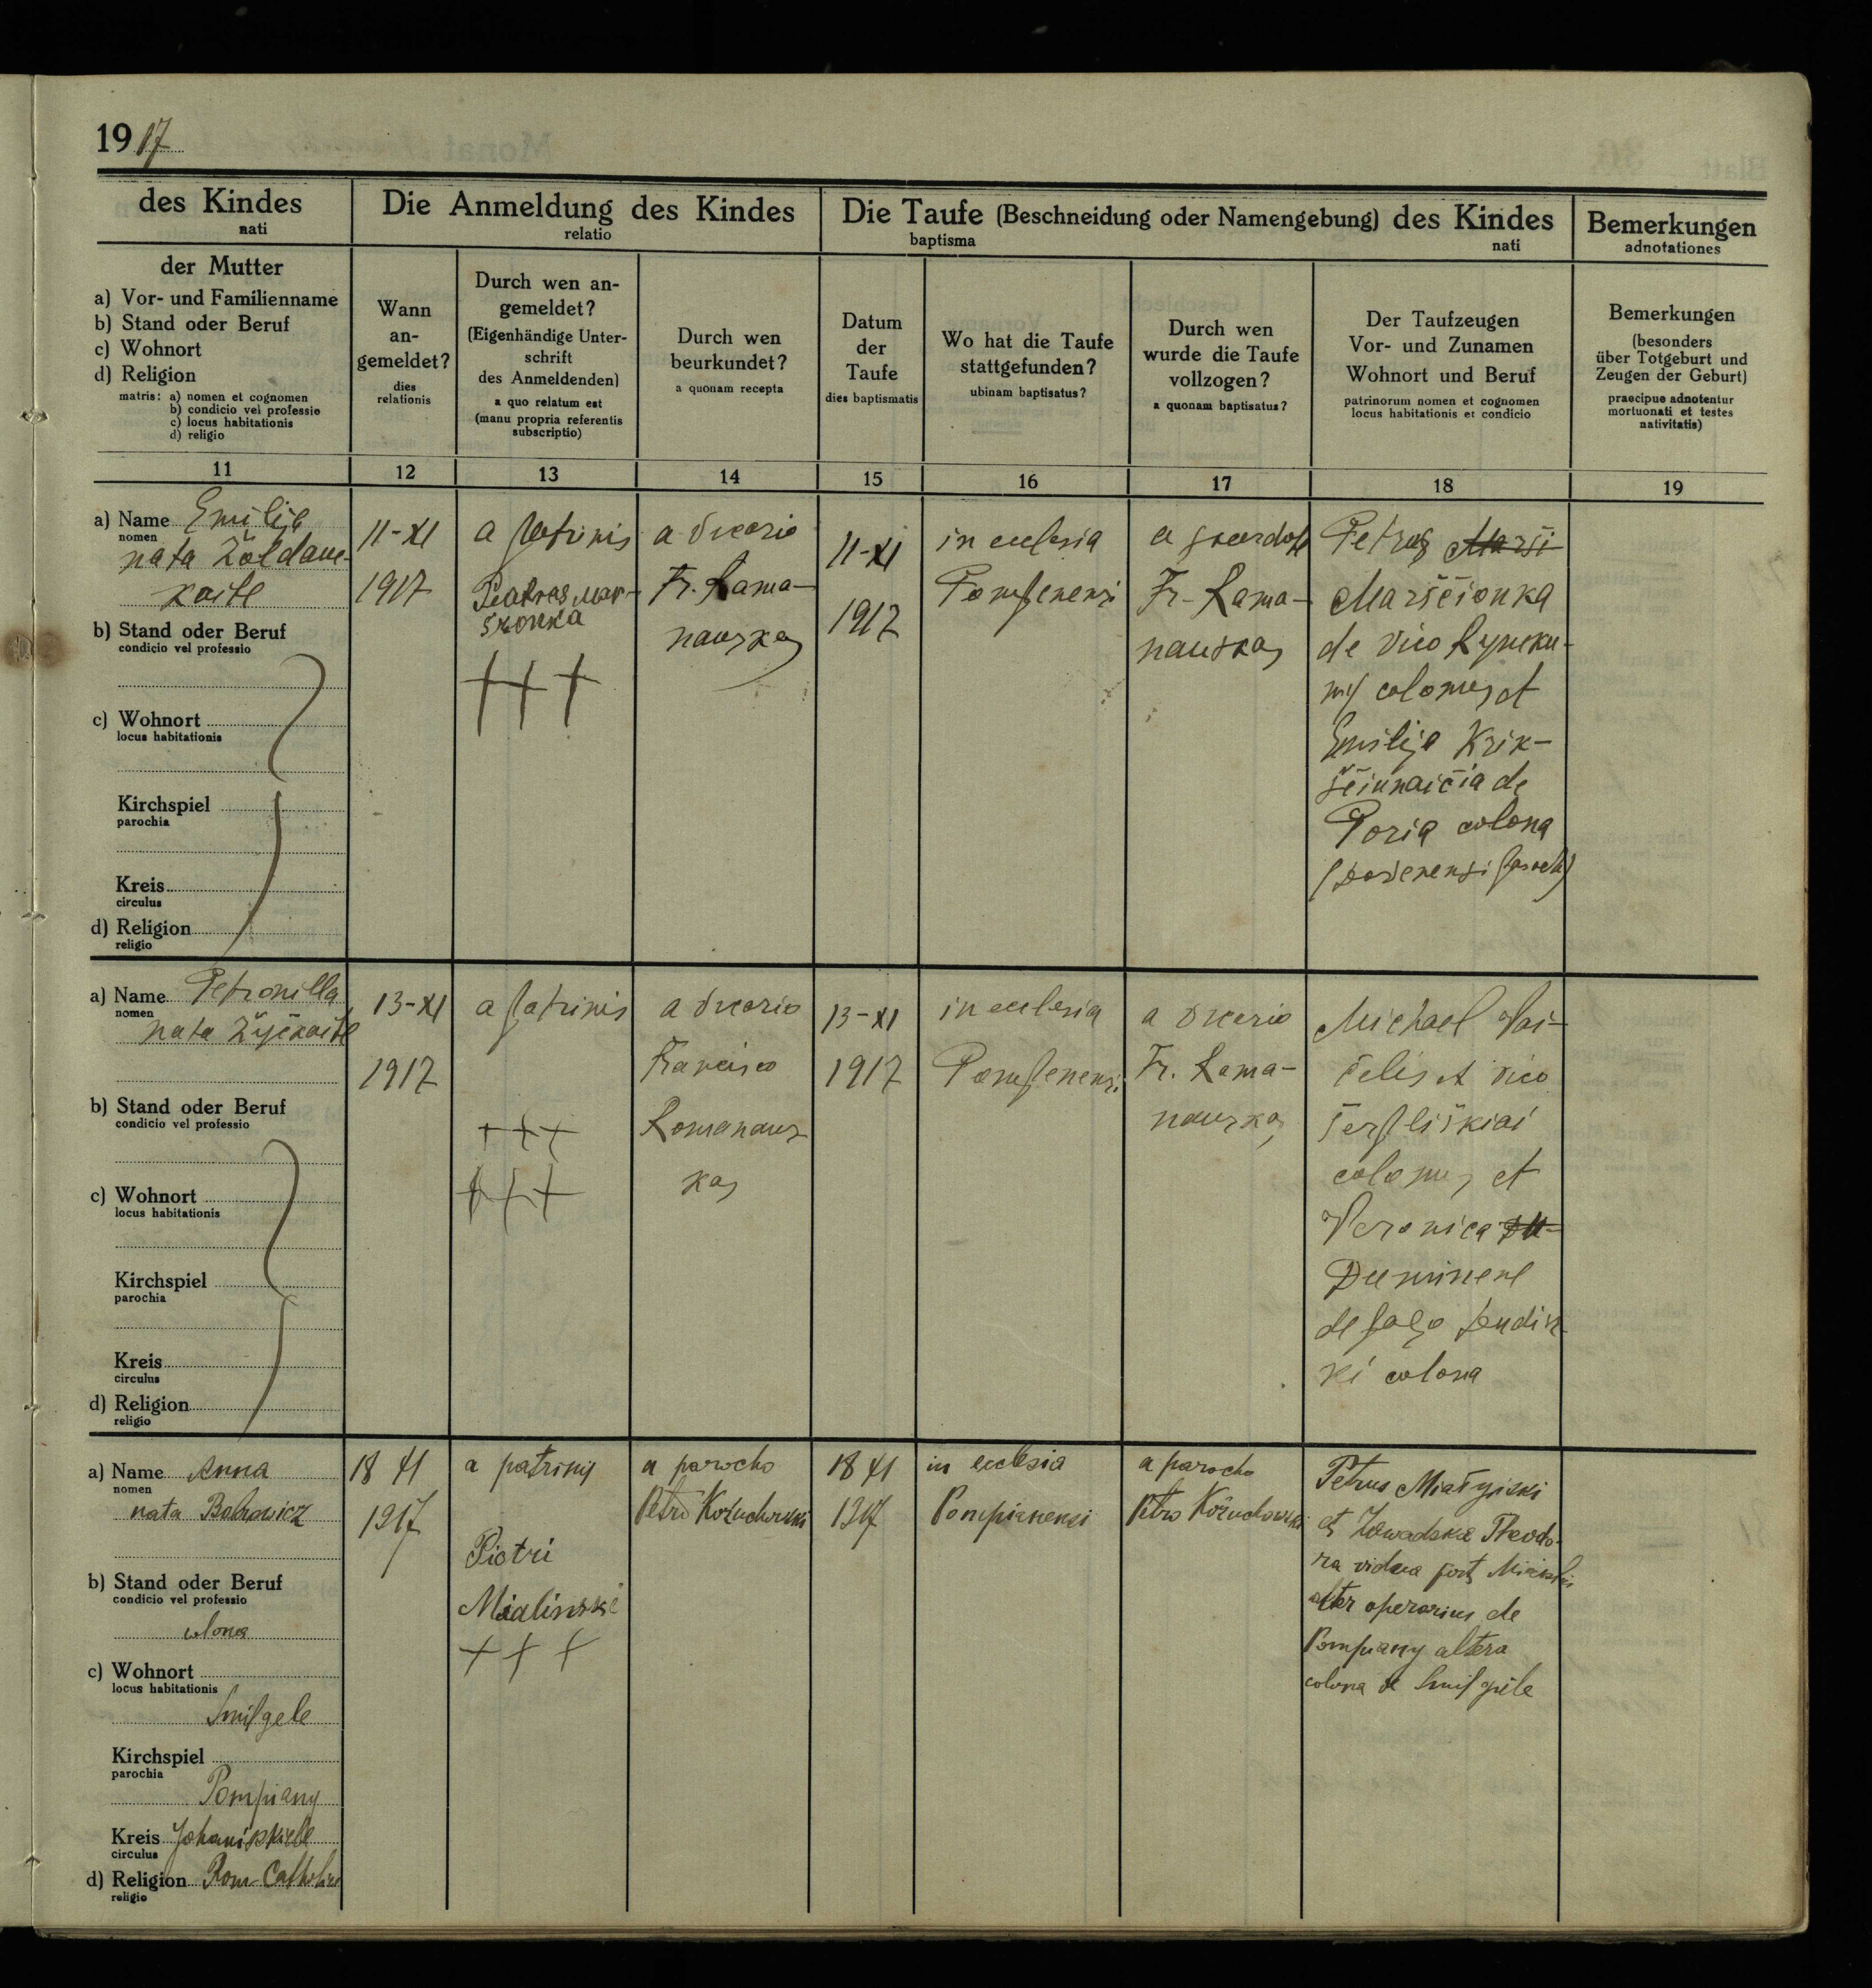 1917
des Kindes
nati
Die Anmeldung des Kindes
relatio
Die Taufe (Beschneidung oder Namengebung) des Kindes
baptisma nati
Bemerkungen
adnotationes
der Mutter
a) Vor- und Familienname
b) Stand oder Beruf
c) Wohnort
d) Religion
matris: a) nomen et cognomen
b) condicio vel professio
c) locus habitationis
d) religio
Wann
an-
gemeldet?
dies
relationis
Durch wen an-
gemeldet?
(Eigenhändige Unter-
schrift
des Anmeldenden)
a quo relatum est
(manu propria referentis
subscriptio)
Durch wen
beurkundet?
a quonam recepta
Datum
der
Taufe
dies baptismatis
Wo hat die Taufe
stattgefunden?
ubinam baptisatus?
Durch wen
wurde die Taufe
vollzogen?
a quonam baptisatus?
Der Taufzeugen
Vor- und Zunamen
Wohnort und Beruf
patrinorum nomen et cognomen
locus habitationis et condicio
Bemerkungen
(besonders
über Totgeburt und
Zeugen der Geburt)
praecipue adnotentur
mortuonati et testes
nativitatis)
11 12 13 14 15 16 17 18 19
a) Name Emilija
nomen
nata Žoldauc-
kaite
b) Stand oder Beruf
condicio vel professio
c) Wohnort
locus habitationis
Kirchspiel
parochia
Kreis
circulus
d) Religion
religio
11-XI
1917
a patrinis
+++
a vicario
Fr. Rama-
nauskas
11-XI
1917
in eclesia
Pompenensi
a sacerdote
Fr. Rama-
nauskas
Petras Marsi
Marščionka
de vico
colonus et
Emilija Krik-
ščiunaičia de
Poria colona
a) Name Petronilla
nomen
nata Žyčkaite
b) Stand oder Beruf
condicio vel professio
c) Wohnort
locus habitationis
Kirchspiel
parochia
Kreis
circulus
d) Religion
religio
13-XI
1917
a patrinis
+++
+++
a vicario
Francisco
Romanaus
kas
13-XI
1917
in eclesia
Pompenensi
a vicario
Fr. Rama-
nauskas
Michael Vai-
čelis et vico
colonus et
Veronica Du-
Duminene
de pago
colona
a) Name Anna
nomen
nata Bobrowicz
b) Stand oder Beruf
condicio vel professio
colona
c) Wohnort
locus habitationis
Smilgele
Kirchspiel
parochia
Pompiany
Kreis Johanischkiele
circulus
d) Religion Rom-Catholica
religio
18 XI
1917
a patrinis
Piotri
Mialinski
+++
a parocho
Petro Kożuchowski
18 XI
1917
in ecclesia
Pompianensi
a parocho
Petro Kożuchowski
Petrus
et Zawadska Theodo-
ra vidua post
alter operarius de
Pompiany altera
colona de Smilgiele